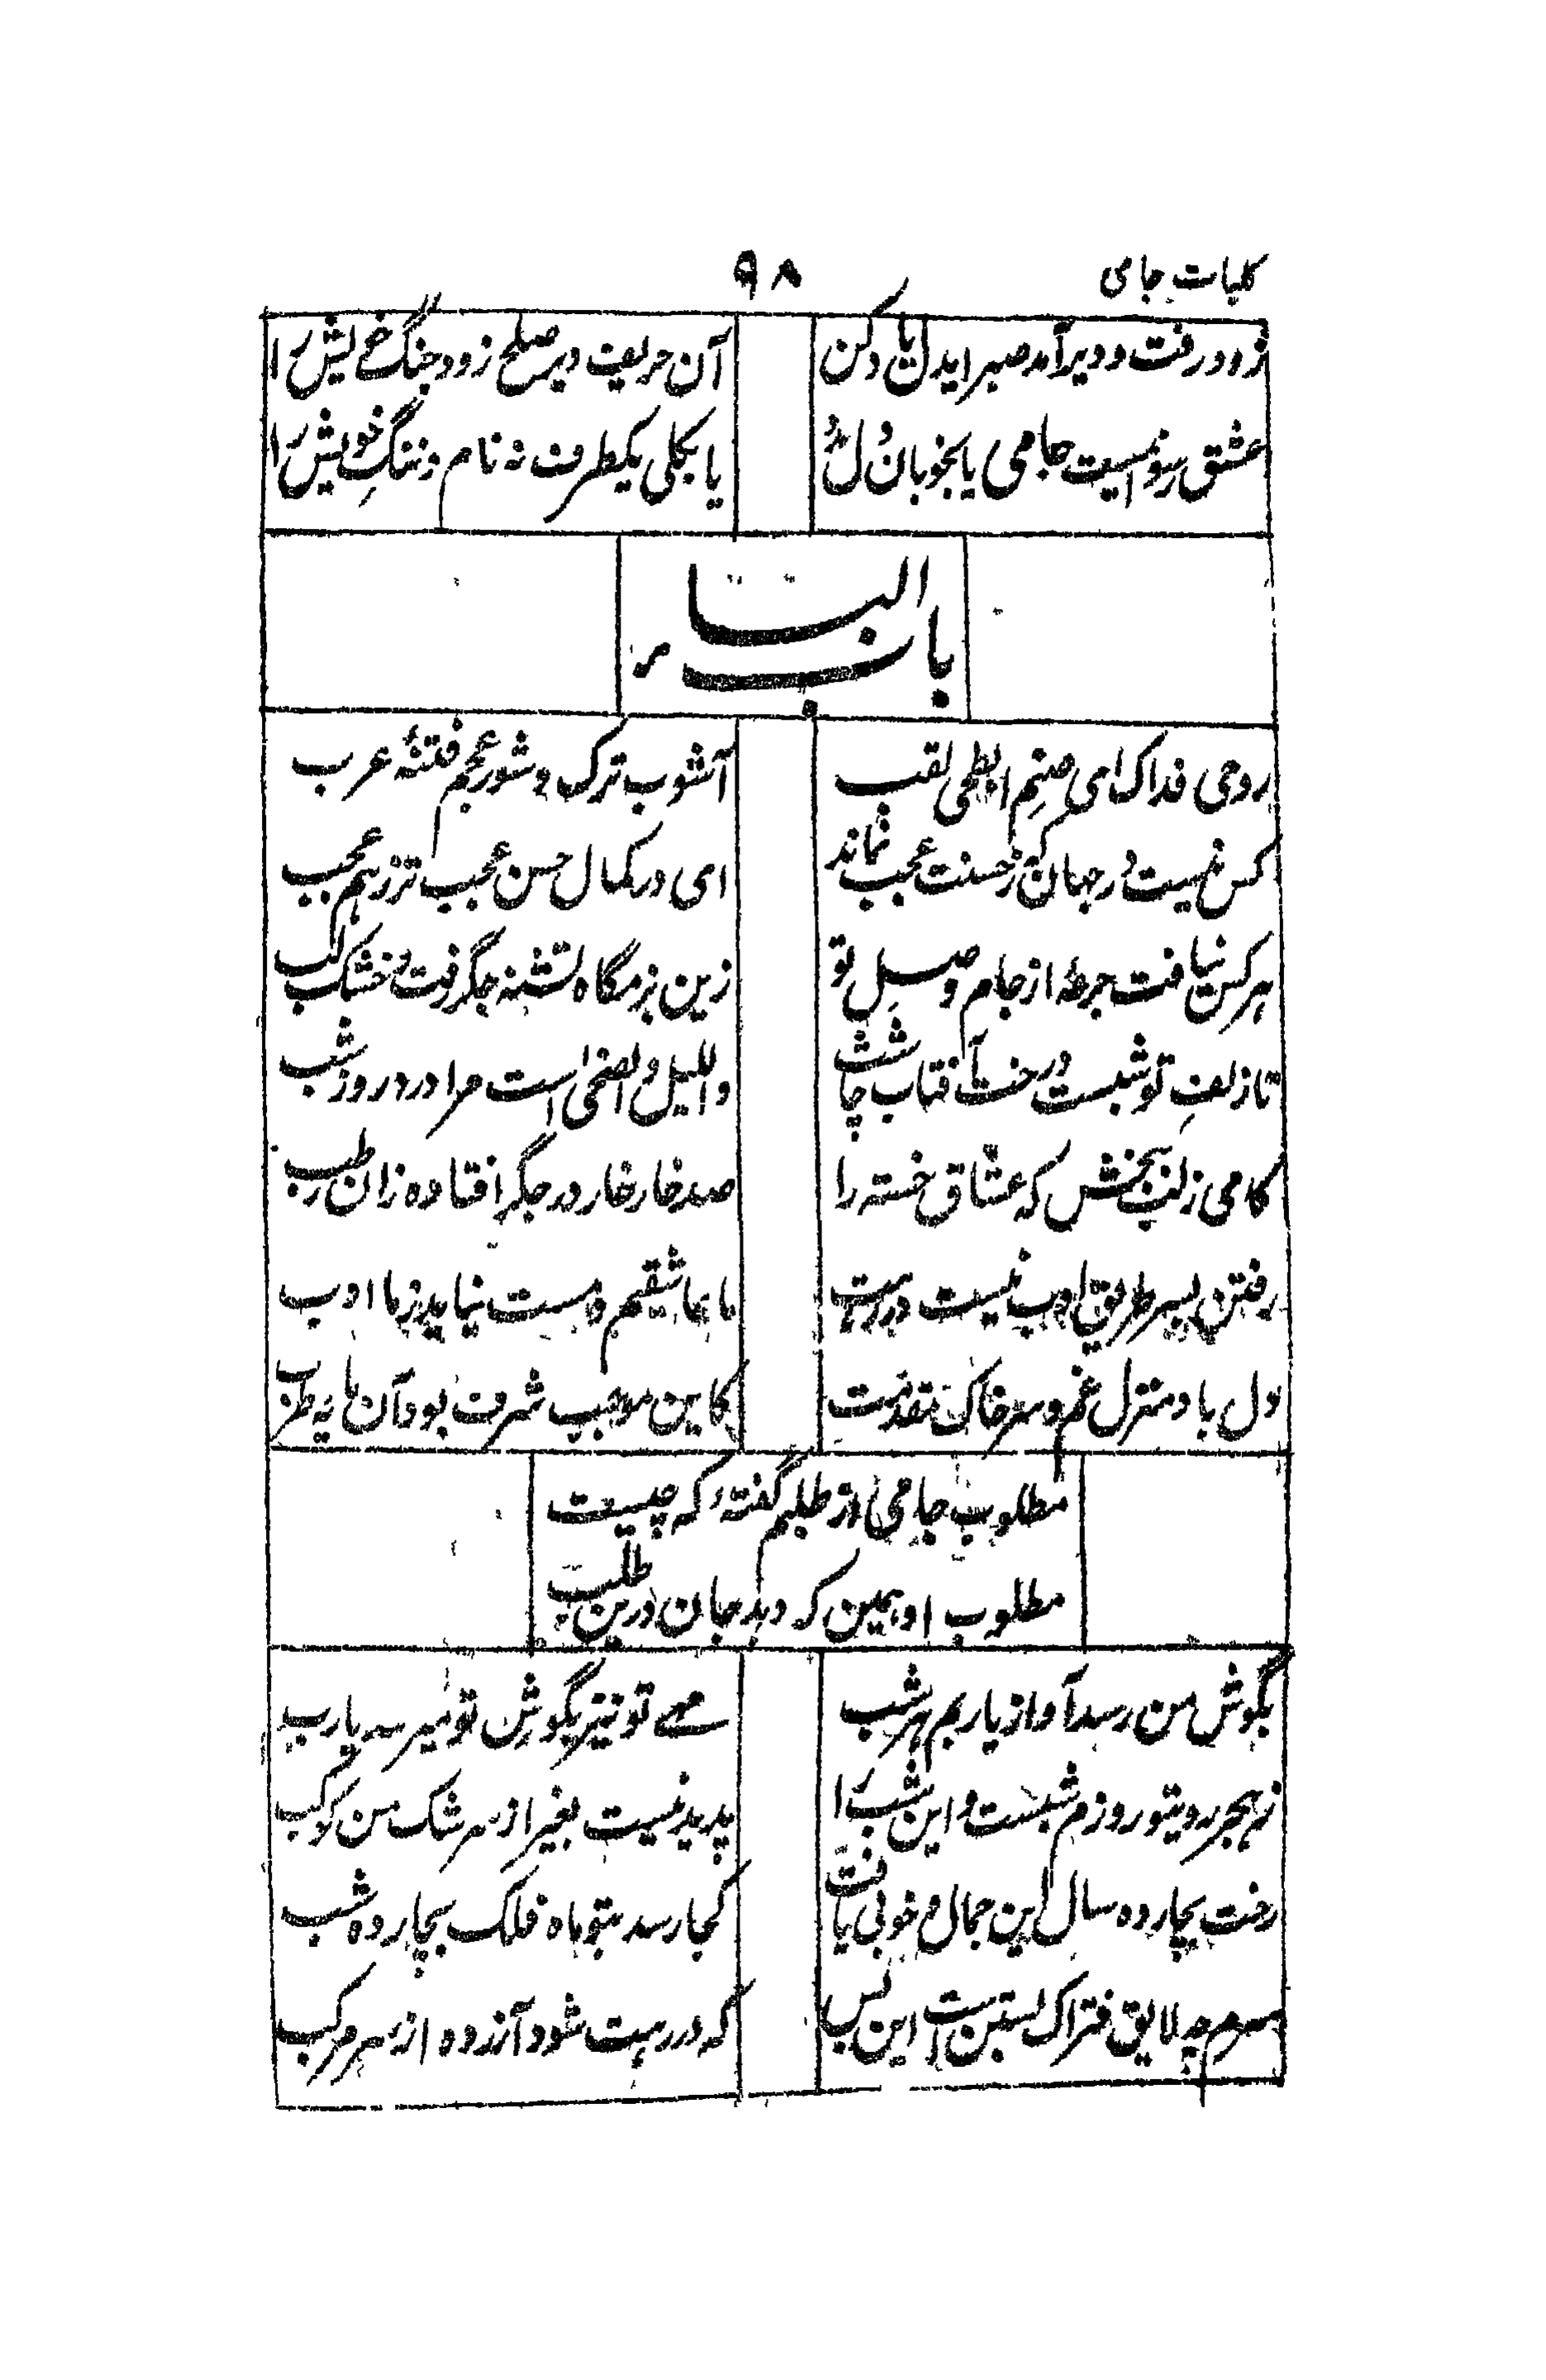 کلیات جامی
۹۸
زود رفت و دیر آمد صبر ایدل یاد کن
آن حریف دیر صلح زود جنگ خویش را
عشق رسوائیست جامی یا بخوبان دل مده
یا بکلی یکطرف نه نام و ننگِ خویش را
باب البا
روحی فداک ای صنمِ ابطحی لقب
آشوب ترک و شور عجم فتنۂ عرب
کس نیست در جهان که ز حسنت عجب نماند
ای در کمال حسن عجب تر ز هر عجب
هر کس نیافت جرعۂ از جام وصلِ تو
زین بزمگاه تشنه جگر رفت و خشک لب
تا زلفِ تو شبست و رخت آفتاب چاشت
واللیل والضحی است مرا ورد روز و شب
کامی ز لب ببخش که عشاق خسته را
صد خار خار در جگر افتاده زان رطب
رفتن بسر طریق ادب نیست در رهت
ما عاشقیم و مست نیاید ز ما ادب
دل باد منزل غم و سر خاک مقدمت
کاین موجب شرف بود آن مایه طرب
مطلوب جامی از طلبم گفتۂ که چیست
مطلوب او همین که دهد جان درین طلب
بگوش من رسد آواز یاربم هر شب
مهی تو نیز بگوش تو میرسد یارب
ز هجر رویتو روزم شبست و این شب را
پدید نیست بغیر از سرشک من کوکب
رخت بچارده سال این جمال و خوبی یافت
کجا رسد بتو ماه فلک بچارده شب
سرم چه لایق فتراک بستن است این بس
که در رهت شود آزرده از سر مرکب